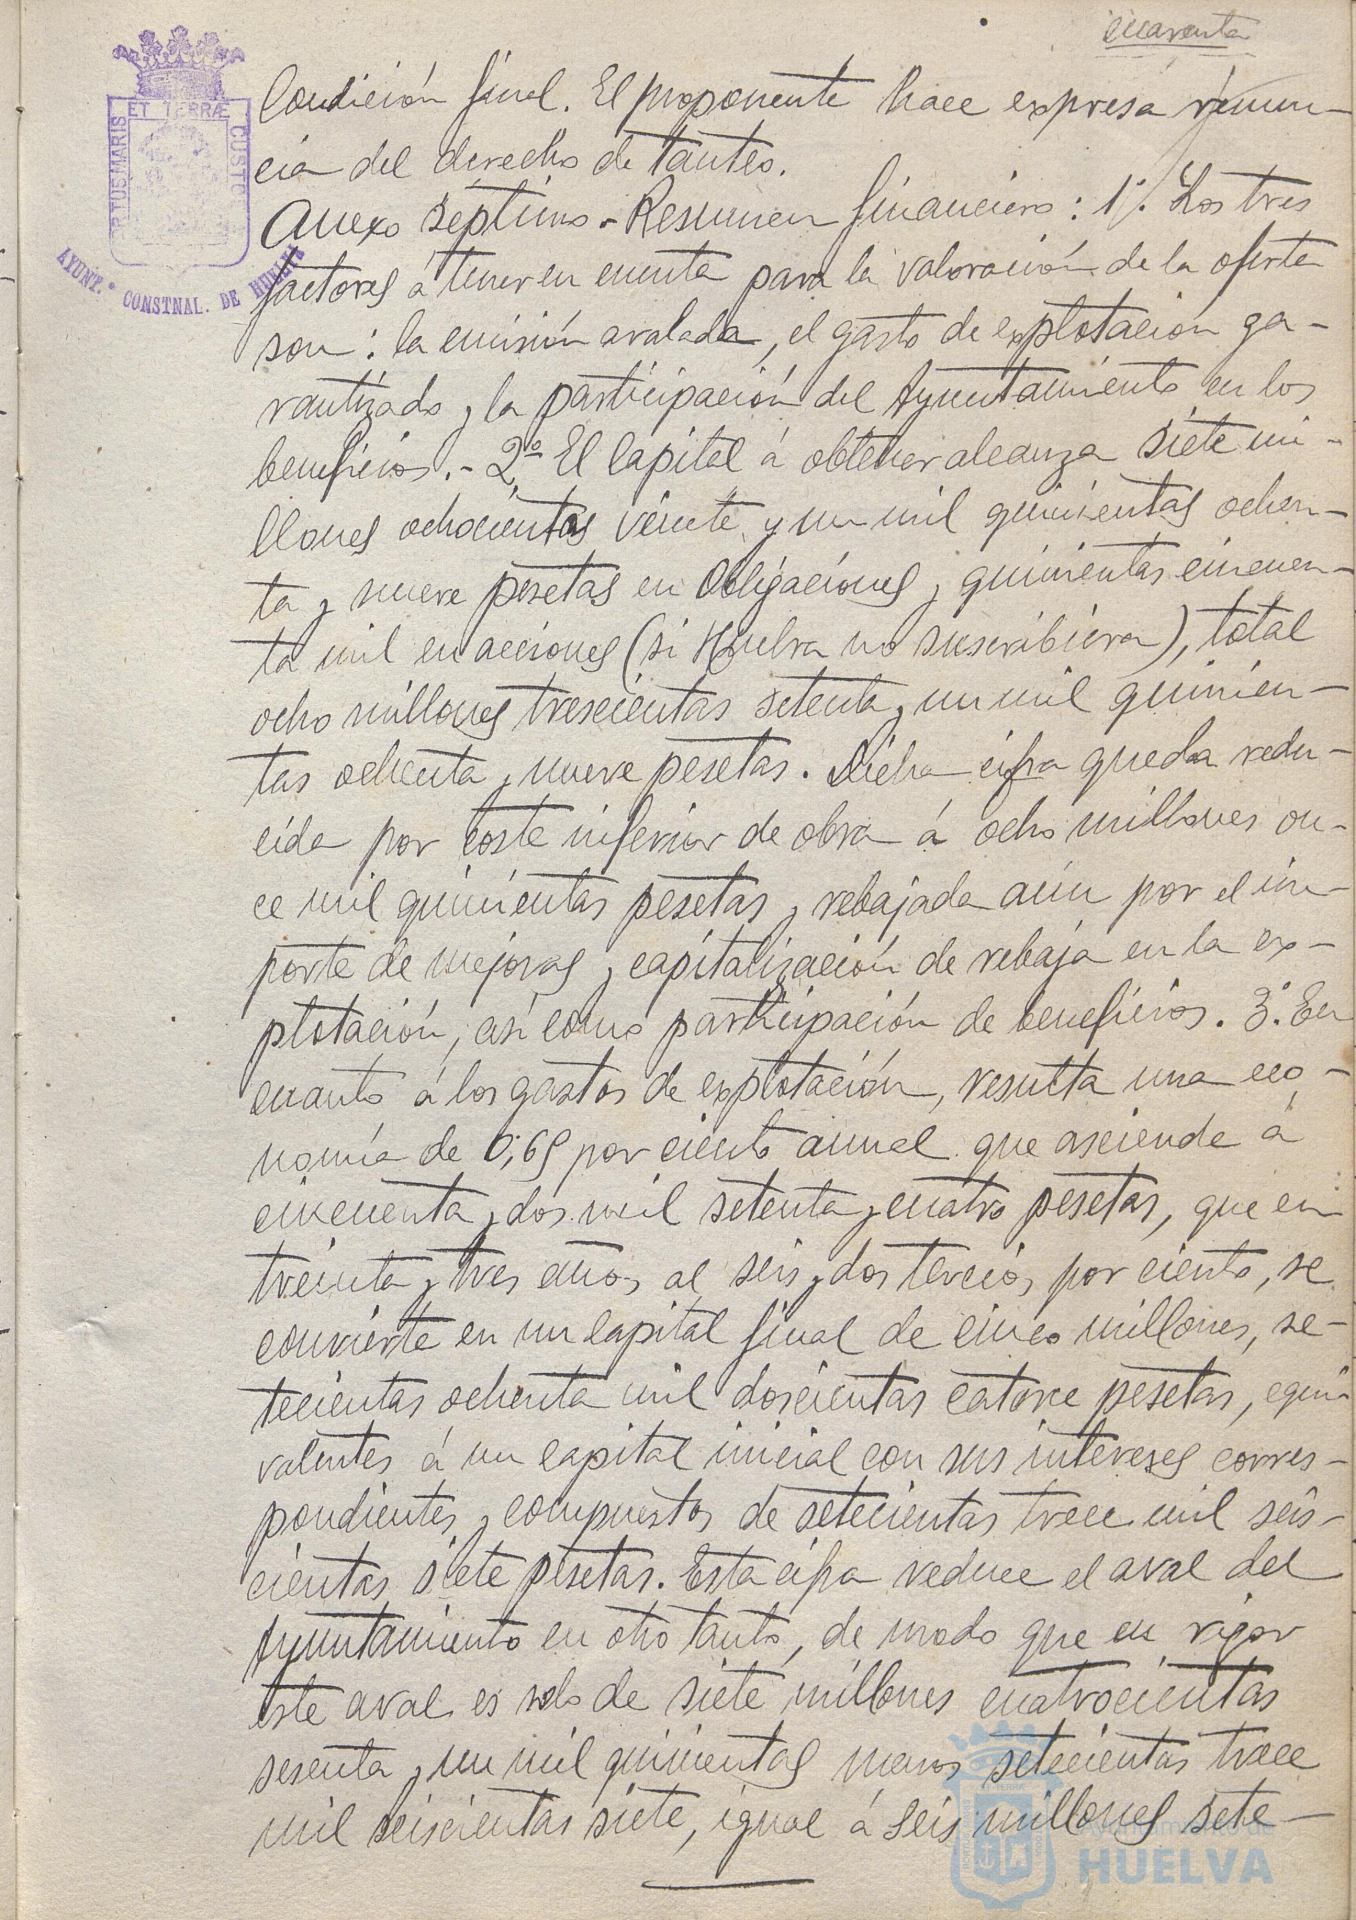 cuarenta
Condición final. El proponente hace expresa renun-
cia del derecho de tanteo.
Anexo séptimo.- Resumen financiero: 1º. Los tres
factores á tener en cuenta para la valoración de la oferta
son: la emisión avalada, el gasto de explotación ga-
rantizado y la participación del Ayuntamiento en los
beneficios.- 2º El Capital á obtener alcanza siete mi-
llones ochocientas veinte y un mil quinientas ochen-
ta y nueve pesetas en Obligaciones y quinientas cincuen-
ta mil en acciones (si Huelva no suscribiera), total
ocho millones trescientas setenta y un mil quinien-
tas ochenta y nueve pesetas. Dicha cifra queda redu-
cida por coste inferior de obra á ocho millones on-
ce mil quinientas pesetas y rebajada aún por el im-
porte de mejoras y capitalización de rebaja en la ex-
plotación, así como participación de beneficios. 3º. En
cuanto á los gastos de explotación, resulta una eco-
nomía de 0,69 por ciento anual que asciende á
cincuenta y dos mil setenta y cuatro pesetas, que en
treinta y tres años al seis y dos tercios por ciento, se
convierte en un capital final de cinco millones, se-
tecientas ochenta mil doscientas catorce pesetas, equi-
valentes á un capital inicial con sus intereses corres-
pondientes y compuestos de setecientas trece mil seis-
cientas siete pesetas. Esta cifra reduce el aval del
Ayuntamiento en otro tanto, de modo que en rigor
este aval es solo de siete millones cuatrocientas
sesenta y un mil quinientas menos setecientas trece
mil seiscientas siete, igual á seis millones sete-
PORTUS MARIS ET TERRÆ CUSTO
AYUNT. CONSTNAL. DE HUELVA
Ayuntamiento de
HUELVA